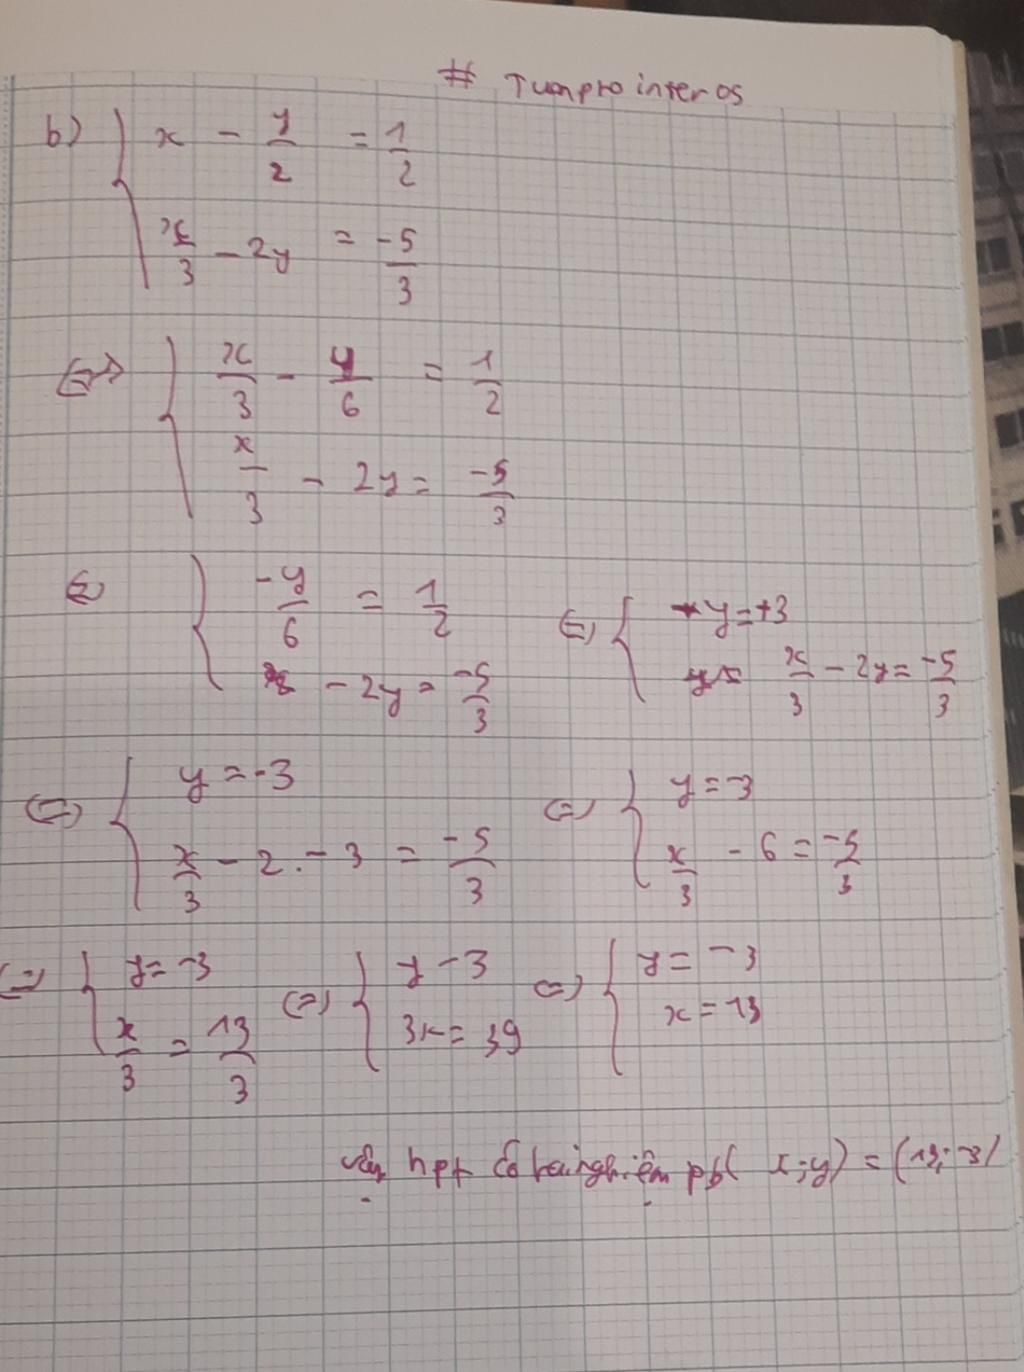 # Tuanpro inter os
b) { x - y/2 = 1/2
x/3 - 2y = -5/3
<=> { x/3 - y/6 = 1/2
x/3 - 2y = -5/3
<=> { -y/6 = 1/2
- 2y = -5/3
<=> { y = +3
x/3 - 2y = -5/3
<=> { y = -3
x/3 - 2. - 3 = -5/3
<=> { y = -3
x/3 - 6 = -5/3
<=> { y = -3
x/3 = 13/3
<=> { y - 3
3x = 39
<=> { y = -3
x = 13
vậy hpt có hai nghiệm pb ( x ; y ) = (13; -3)